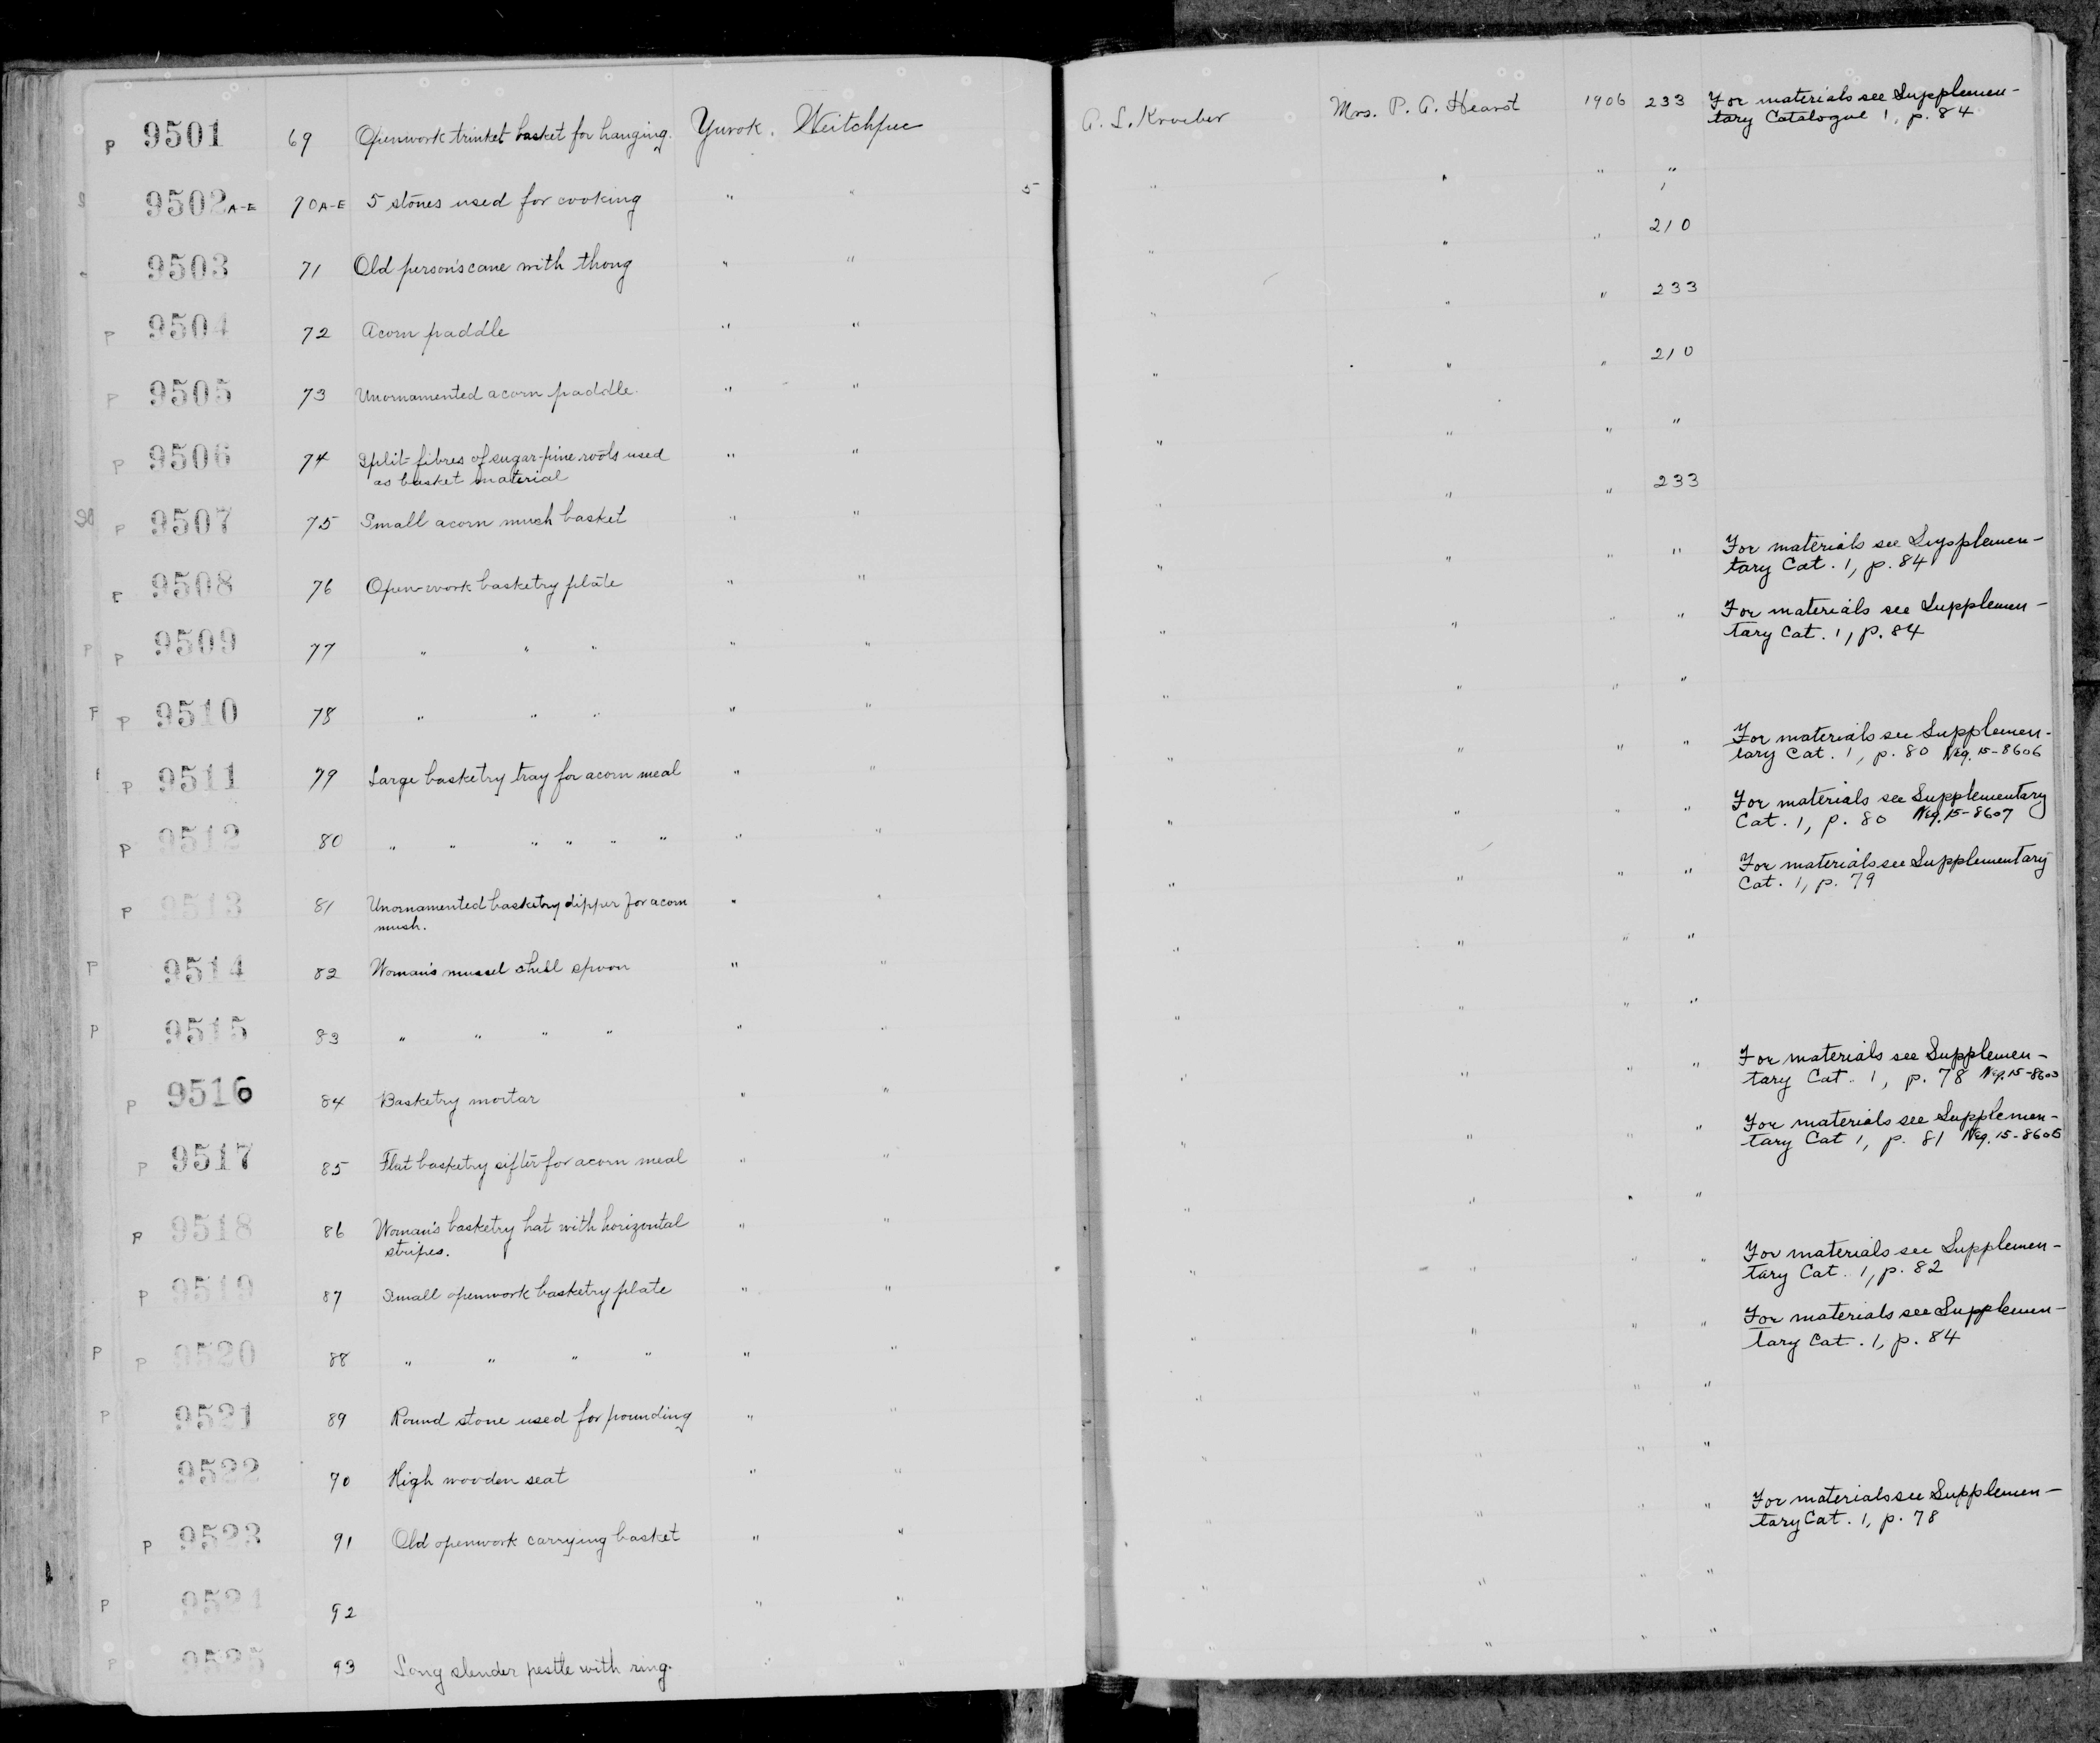 P 9501 69 Openwork trinket basket for hanging. Yurok. Weitchpec A. L. Kroeber Mrs. P. A. Hearst 1906 233 For materials see Supplemen-
tary Catalogue 1, p. 84
9502 A-E 70A-E 5 stones used for cooking " " 5 " " " "
9503 71 Old person's cane with thong " " " " " 210
P 9504 72 Acorn paddle " " " " " 233
P 9505 73 Unornamented acorn paddle. " " " " " 210
P 9506 74 Split fibres of sugar-pine roots used " " " " " "
as basket material
P 9507 75 Small acorn mush basket " " " " " 233
9508 76 Open-work basketry plate " " " " " " For materials see Suypplemen-
tary Cat. 1, p. 84
P P 9509 77 " " " " " " " " " For materials see Supplemen-
tary Cat. 1, p. 84
P 9510 78 " " " " " " " " "
P 9511 79 Large basketry tray for acorn meal " " " " " " For materials see Supplemen-
tary Cat. 1, p. 80 Neg. 15-8606
P 9512 80 " " " " " " " " " " " " For materials see Supplementary
Cat. 1, p. 80 Neg. 15-8607
P 9513 81 Unornamented basketry dipper for acorn " " " " " " For materials see Supplementary
mush. Cat. 1, p. 79
P 9514 82 Woman's mussel shell spoon " " " " " "
P 9515 83 " " " " " " " " " "
P 9516 84 Basketry mortar " " " " " " For materials see Supplemen-
tary Cat. 1, p. 78 Neg. 15-8603
P 9517 85 Flat basketry sifter for acorn meal " " " " " " For materials see Supplemen-
tary Cat 1, p. 81 Neg. 15-8605
P 9518 86 Woman's basketry hat with horizontal " " " " " "
stripes.
P 9519 87 Small openwork basketry plate " " " " " " For materials see Supplemen-
tary Cat. 1, p. 82
P P 9520 88 " " " " " " " " " " For materials see Supplemen-
tary Cat. 1, p. 84
P 9521 89 Round stone used for pounding " " " " " "
9522 90 High wooden seat " " " " " "
P 9523 91 Old openwork carrying basket " " " " " " For materials see Supplemen-
tary Cat. 1, p. 78
P 9524 92 " " " " " "
P 9525 93 Long slender pestle with ring. " " " " "